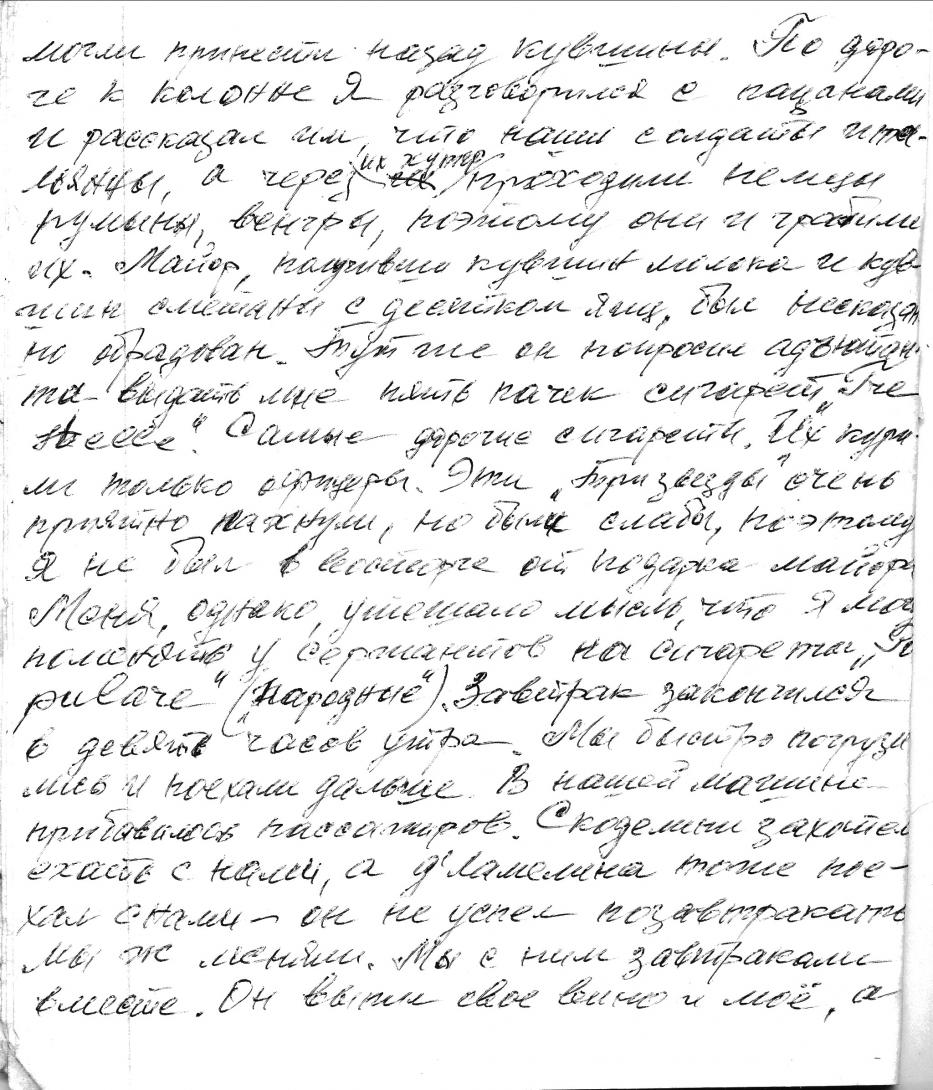 могли принести назад кувшины. По доро-
ге к колонне я разговорился с пацанами
и рассказал им, что наши солдаты ита-
льянцы, а через их хутор проходили немцы
румыны, венгры, поэтому они и грабили
их. Майор, получивши кувшин молока и кув-
шин сметаны с десятком яиц, был несказан
но обрадован. Тут же он попросил адъютан-
та выдать мне пять пачек сигарет „Tre
stelle“. Самые дорогие сигареты. Их кури-
ли только офицеры. Эти „Три звезды“ очень
приятно пахнули, но были слабы, поэтому
я не был в восторге от подарка майора
Меня, однако, утешала мысль, что я могу
поменять у сержантов на сигареты „Po
pulace“ („Народные“). Завтрак закончился
в девять часов утра. Мы быстро погрузи
лись и поехали дальше. В нашей машине
прибавилось пассажиров. Скоделини захотел
ехать с нами, а д'Ламелина тоже пое-
хал с нами – он не успел позавтракать
мы ж меняли. Мы с ним завтракали
вместе. Он выпил свое вино и моё, а